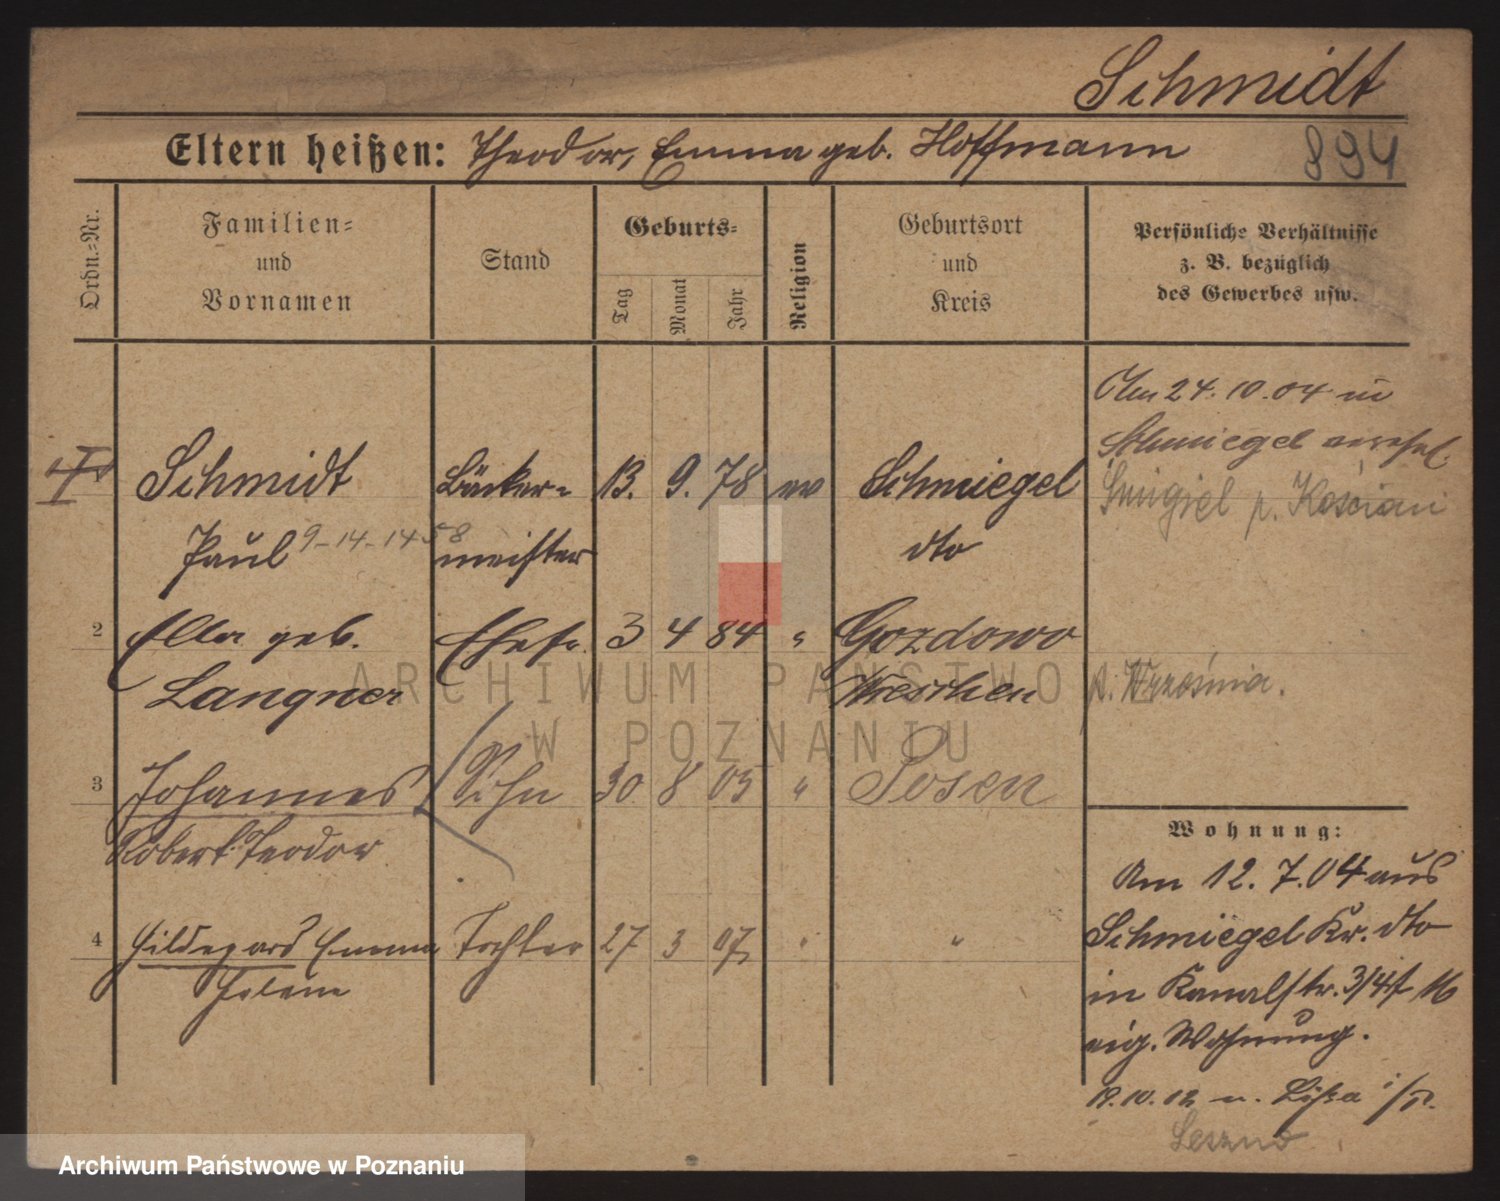 Schmidt
Eltern heißen: Theodor, Emma geb. Hoffmann
894
Ordn.=Nr.
Familien=
und
Vornamen
Stand
Geburts=
Tag
Monat
Jahr
Religion
Geburtsort
und
Kreis
Persönliche Verhältnisse
z. B. bezüglich
des Gewerbes usw.
Am 24. 10. 04 in
Schmiegel verehel.
Schmidt Bäcker= 13. 9. 78 ev Schmiegel
Śmigiel p. Kościan
Paul 9-14-1458 meister dto
2 Ella geb. Ehefr. 3 4 84 " Gozdowo
Langner Wreschen p. Września.
3 Johannes Sohn 30 8 05 " Posen
Robert Teodor
4 Hildegard Emma Tochter 27 3 07 " "
Helene
Wohnung:
Am 12. 7. 04 aus
Schmiegel Kr. dto
in Kanalstr. 3/4
eig. Wohnung.
19. 10. 12 n. Lissa i/P.
Leszno
ARCHIWUM PAŃSTWOWE
W POZNANIU
Archiwum Państwowe w Poznaniu